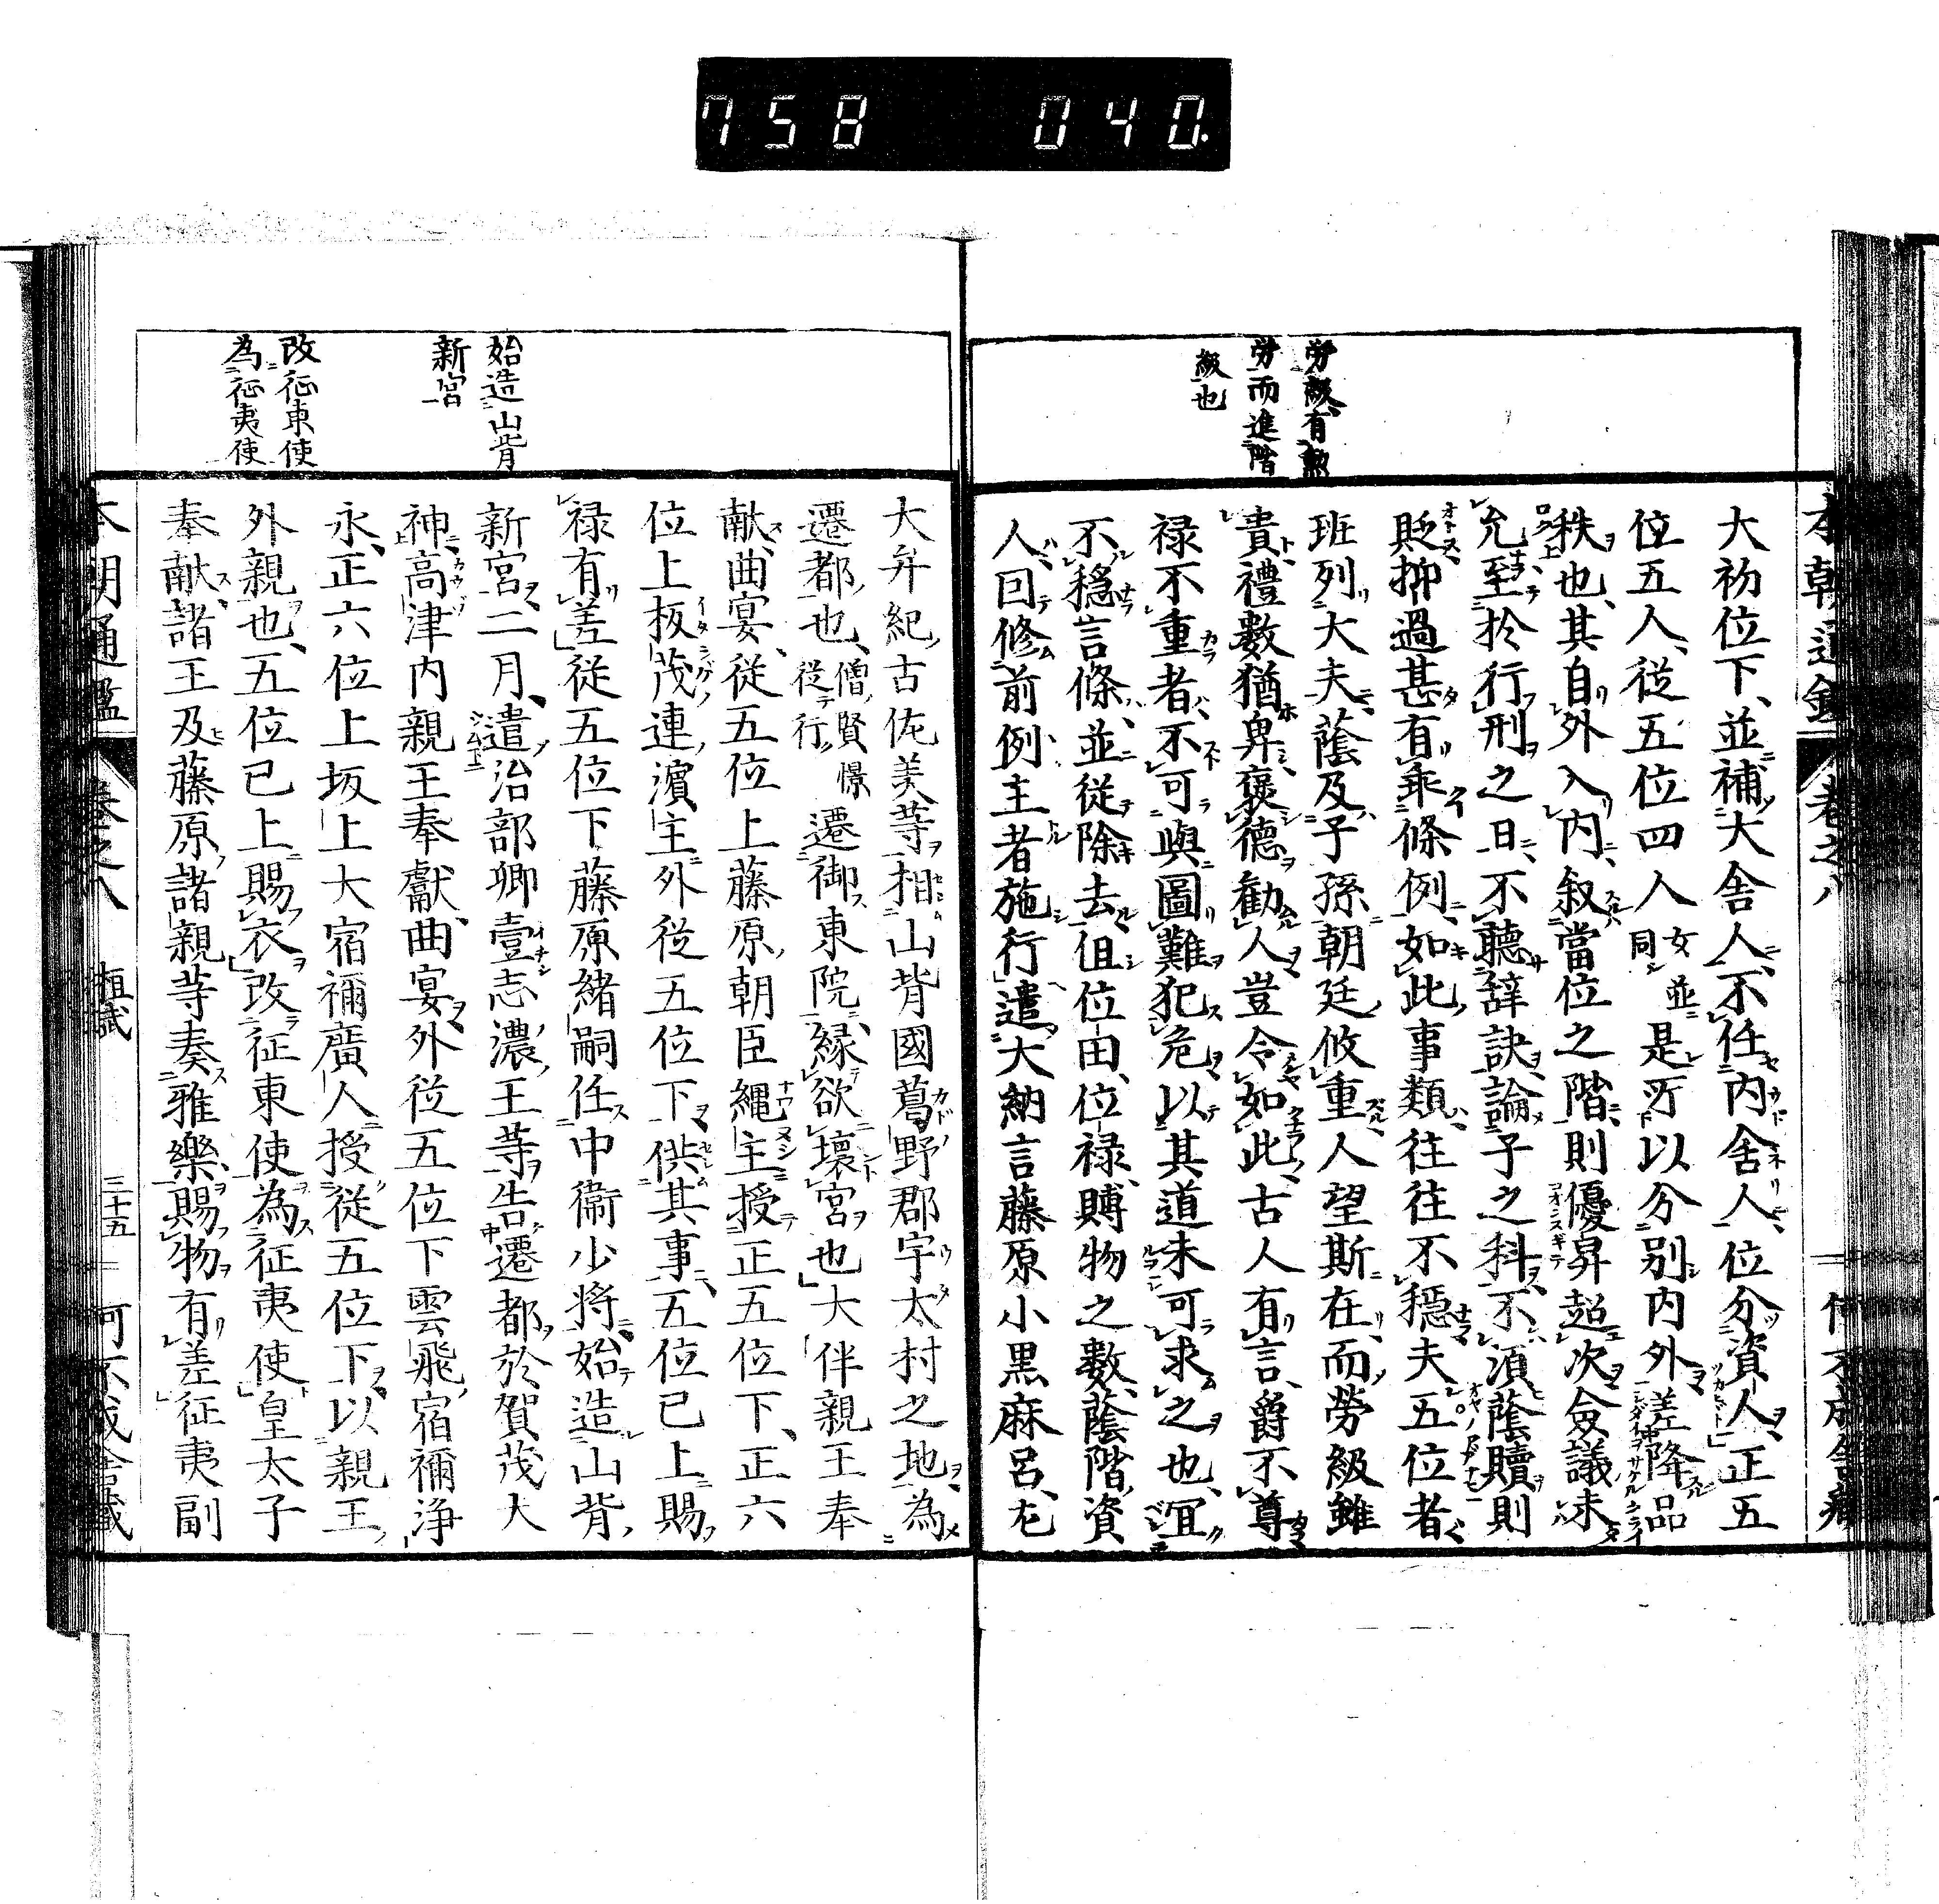 758 040.
勞級、有勲
勞而進階
級也
大初位下、並補大舍人、不任内舍人、位分資人、正五
位五人、從五位四人女並同是所以分別内外、差降品
秩也、其自外入内、叙當位之階、則優昇超次、僉議未
允、至於行刑之日、不聽辞訣、論子之科、不須蔭贖、則
貶抑過甚、有乖條例、如此事類、往往不穏、夫五位者
班列大夫、蔭及子孫、朝廷攸重、人望斯在、而勞級雖
貴、禮數猶卑、褒德勸人、豈令如此、古人有言、爵不尊
禄不重者、不可與圖難犯危、以其道未可求之也、冝
不穏言條、並從除去、但位田、位禄、賻物之數、蔭階、資
人、回修前例、主者施行、遣大納言藤原小黒麻呂、左
大弁紀古佐美等、相山背國葛野郡宇太村之地、為
遷都也、僧賢憬從行遷御東院、縁欲壞宮也、大伴親王奉
献、曲宴、從五位上藤原朝臣縄主授正五位下、正六
位上板茂連濱主外從五位下、供其事、五位已上賜
禄有差、從五位下藤原緒嗣任中衞少将、始造山背
新宮、二月、遣治部卿壹志濃王等、告遷都於賀茂大
神、高津内親王奉獻、曲宴、外從五位下雲飛宿禰浄
永、正六位上坂上大宿禰廣人授從五位下、以親王
外親也、五位已上賜衣、改征東使為征夷使、皇太子
奉献、諸王及藤原諸親等奏雅樂、賜物有差、征夷副
始造山背
新宮
改征東使
為征夷使
本朝通鑑 卷之八 桓武 三十五